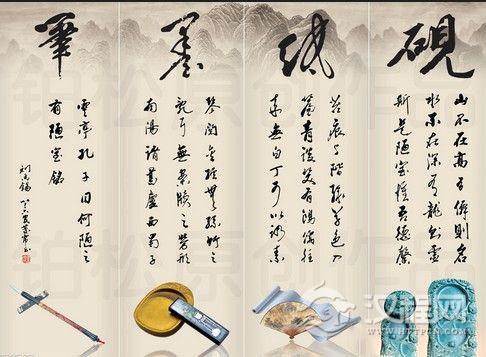 硯
山不在高有僊則名
水不在深有龍則靈
斯是陋室惟吾德馨
纸
苔痕上階綠草色入
簾青談笑有鴻儒往
來無白丁可以調素
墨
琴閱金經無絲竹之
亂耳無案牘之勞形
南陽諸葛廬西蜀子
筆
雲亭孔子曰何陋之
有陋室銘
劉禹錫
铂松原创作品
铂松原创作品
汉程网